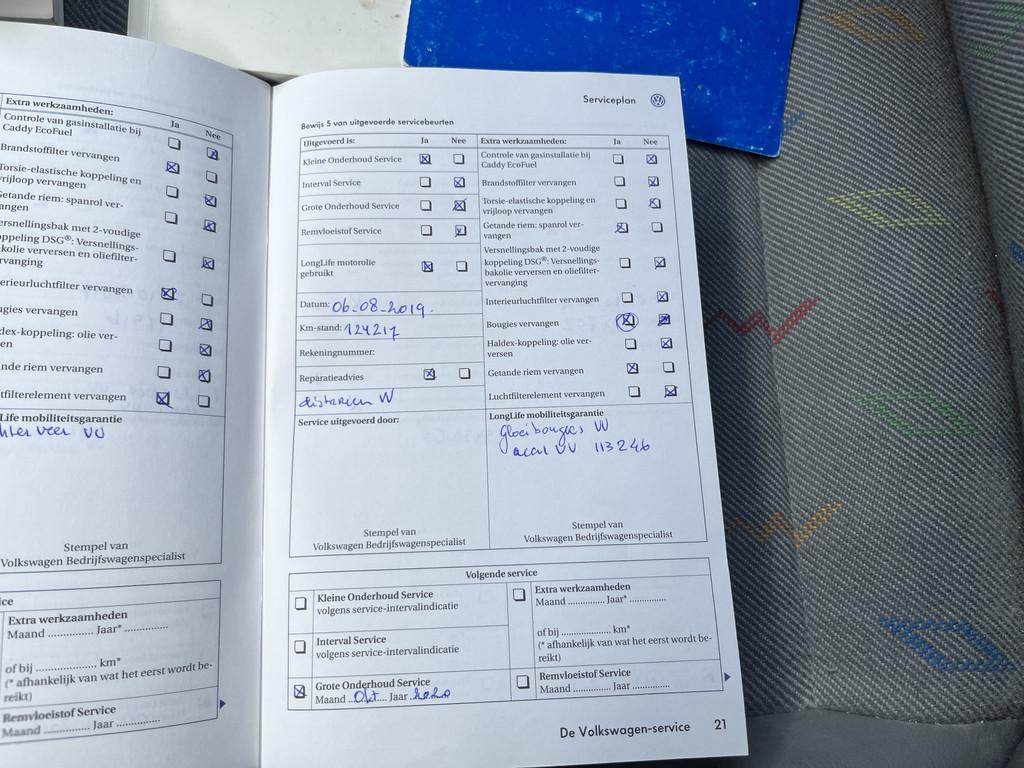 Extra werkzaamheden:
Ja
Nee
Controle van gasinstallatie bij
Caddy EcoFuel
Brandstoffilter vervangen
Torsie-elastische koppeling en
vrijloop vervangen
Getande riem: spanrol ver-
vangen
ersnellingsbak met 2-voudige
oppeling DSG®: Versnellings-
akolie verversen en oliefilter-
ervanging
erieurluchtfilter vervangen
gies vervangen
dex-koppeling: olie ver-
en
nde riem vervangen
tfilterelement vervangen
Life mobiliteitsgarantie
Stempel van
Volkswagen Bedrijfswagenspecialist
ice
Extra werkzaamheden
Maand .............. Jaar* ..............
of bij .................... km*
(* afhankelijk van wat het eerst wordt be-
reikt)
Remvloeistof Service
Maand .............. Jaar ..............
Serviceplan
Bewijs 5 van uitgevoerde servicebeurten
Uitgevoerd is:
Ja
Nee
Kleine Onderhoud Service
Interval Service
Grote Onderhoud Service
Remvloeistof Service
LongLife motorolie
gebruikt
Datum: 06-08-2019.
Km-stand: 124217
Rekeningnummer:
Reparatieadvies
VV
Service uitgevoerd door:
Stempel van
Volkswagen Bedrijfswagenspecialist
Extra werkzaamheden:
Ja
Nee
Controle van gasinstallatie bij
Caddy EcoFuel
Brandstoffilter vervangen
Torsie-elastische koppeling en
vrijloop vervangen
Getande riem: spanrol ver-
vangen
Versnellingsbak met 2-voudige
koppeling DSG®: Versnellings-
bakolie verversen en oliefilter-
vervanging
Interieurluchtfilter vervangen
Bougies vervangen
Haldex-koppeling: olie ver-
versen
Getande riem vervangen
Luchtfilterelement vervangen
LongLife mobiliteitsgarantie
gloeibougies VV
accu VV 113246
Stempel van
Volkswagen Bedrijfswagenspecialist
Volgende service
Kleine Onderhoud Service
volgens service-intervalindicatie
Interval Service
volgens service-intervalindicatie
Grote Onderhoud Service
Maand ...Okt.... Jaar ..2020
Extra werkzaamheden
Maand .............. Jaar* ..............
of bij .................... km*
(* afhankelijk van wat het eerst wordt be-
reikt)
Remvloeistof Service
Maand .............. Jaar ..............
De Volkswagen-service 21